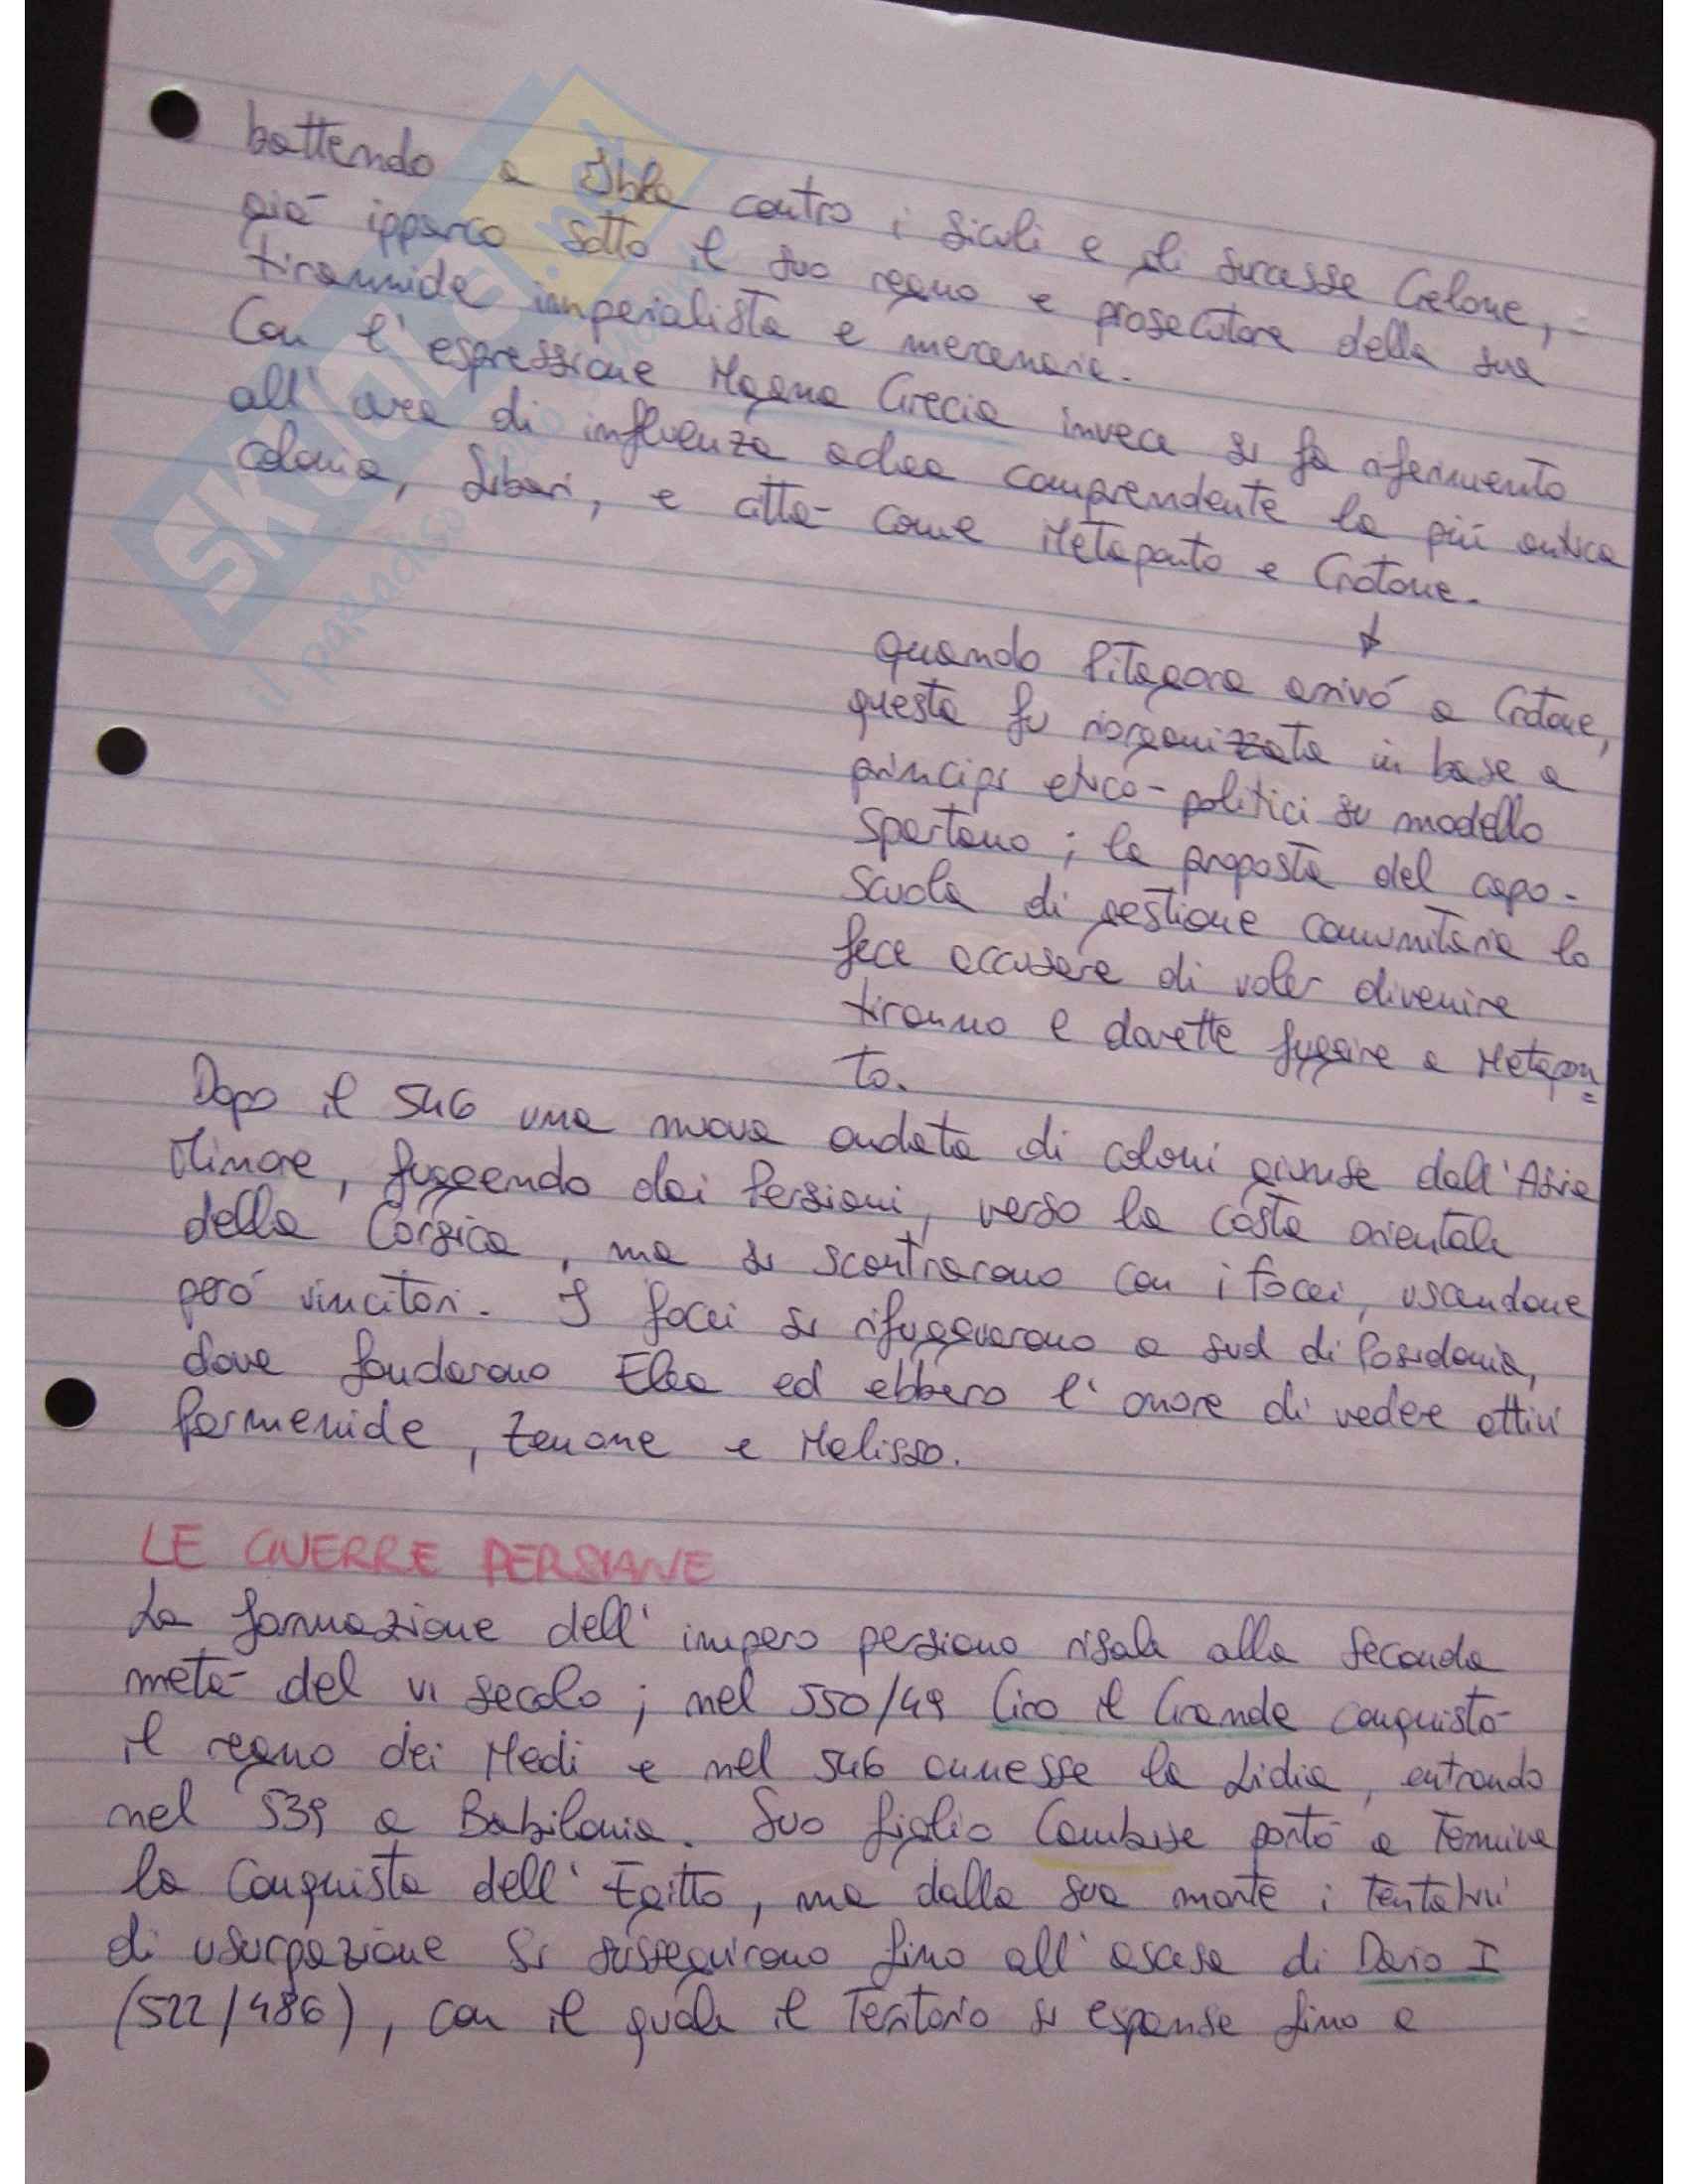 battendo a Ibla contro i Siculi e gli successe Gelone,
già ipparco sotto il suo regno e prosecutore della sua
tirannide imperialista e mercenaria.
Con l'espressione Magna Grecia invece si fa riferimento
all'area di influenza achea comprendente la più antica
colonia, Sibari, e città come Metaponto e Crotone.
quando Pitagora arrivò a Crotone,
questa fu riorganizzata in base a
principi etico-politici su modello
spartano; la proposta del capo-
scuola di gestione comunitaria lo
fece accusare di voler divenire
tiranno e dovette fuggire a Metapon=
to.
Dopo il 546 una nuova ondata di coloni giunse dall'Asia
Minore, fuggendo dai Persiani, verso la costa orientale
della Corsica, ma si scontrarono con i focei, uscendone
però vincitori. I focei si rifugiarono a sud di Posidonia,
dove fondarono Elea ed ebbero l'onore di vedere attivi
Parmenide, Zenone e Melisso.
LE GUERRE PERSIANE
La formazione dell'impero persiano risale alla seconda
metà del VI secolo; nel 550/49 Ciro il Grande conquistò
il regno dei Medi e nel 546 annesse la Lidia, entrando
nel 539 a Babilonia. Suo figlio Cambise portò a termine
la conquista dell'Egitto, ma dalla sua morte i tentativi
di usurpazione si susseguirono fino all'ascesa di Dario I
(522/486), con il quale il territorio si espanse fino a
SKUOLA.net
il paradiso dello studente